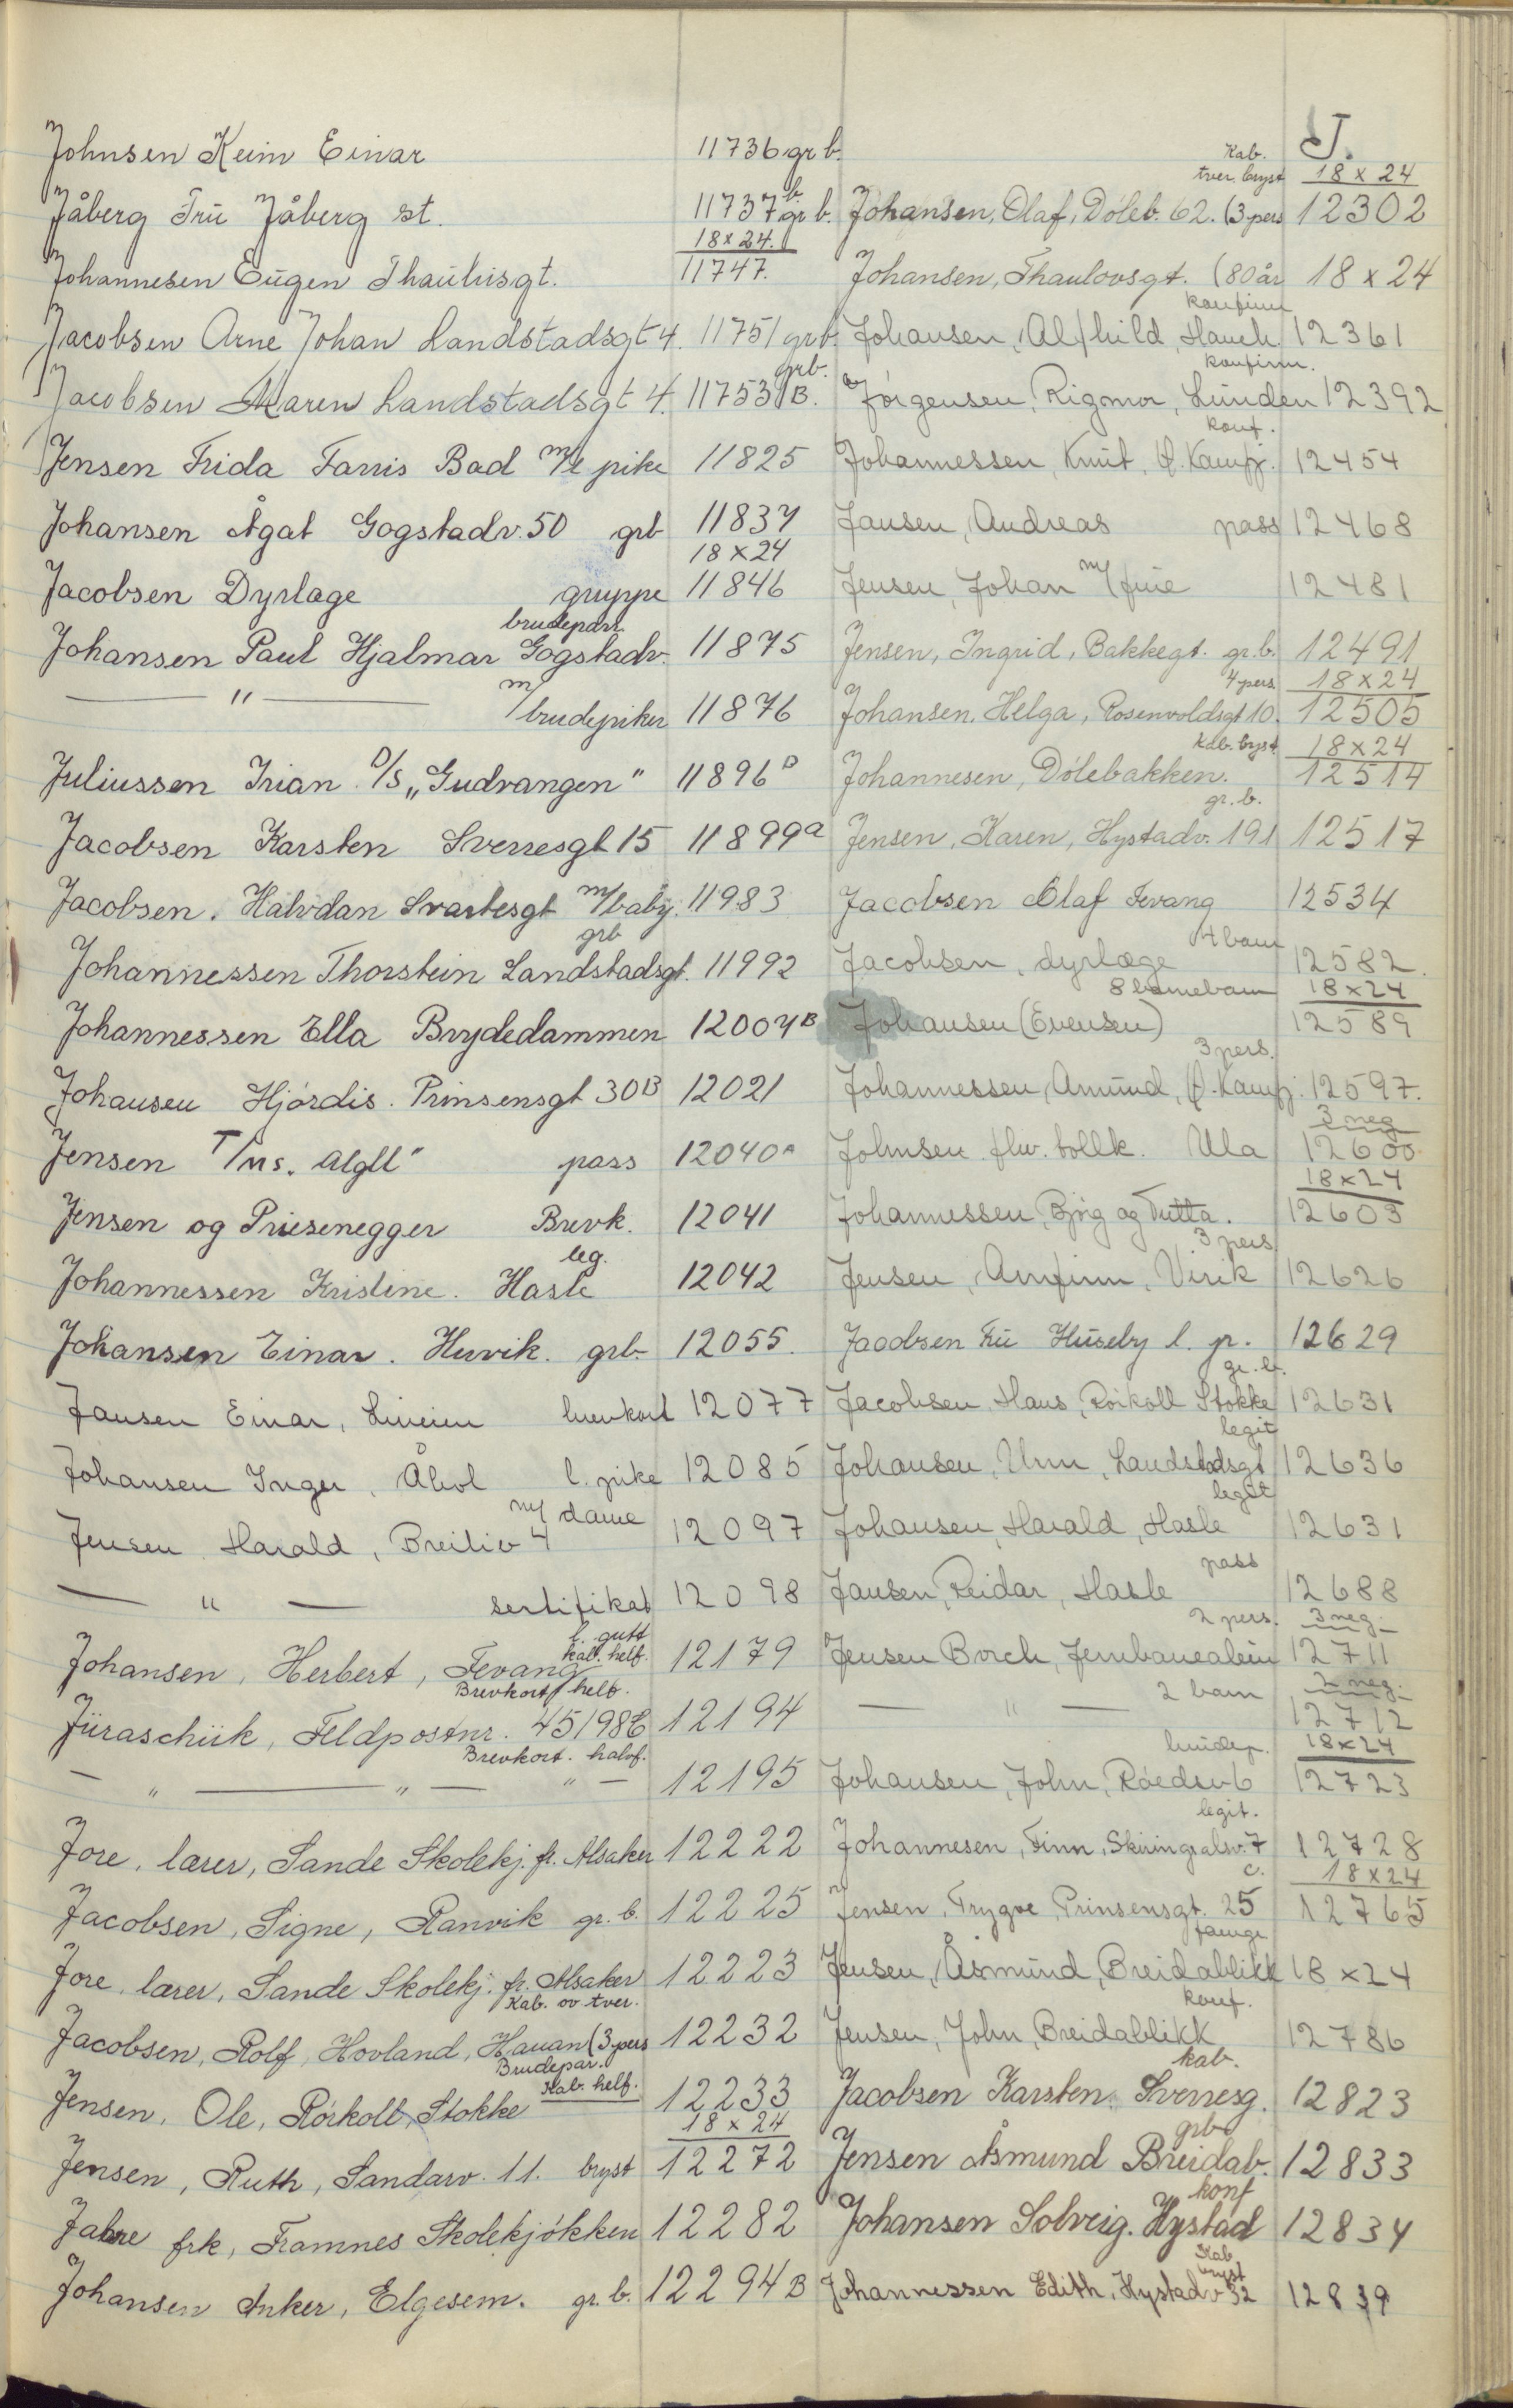 J.
Johnsen Keim Einar 11736 gr b.
Jåberg Frü Jåberg st. 11737 b gr b.
18 x 24.
Johannesen Eügen 11747.
Jacobsen Arne Johan Landstadsgt 4. 11751 grb.
Jacobsen Maren Landstadsgt 4. 11753 B. grb.
Jensen Frida Farris Bad m/l pike 11825
Johansen Ågat Gogstadv. 50 grb 11837
18 x 24
Jacobsen Dyrlage gruppe 11846
brudeparr.
Johansen Paul Hjalmar Gogstadv. 11875
— " — m/brudepiker 11876
Juliussen Irian D/S „Gudvangen" 11896 D
Jacobsen Karsten Sverresgt 15 11899 a
Jacobsen. Halvdan Svartesgt m/baby. 11983
grb
Johannessen Thorstein Landstadsgt. 11992
Johannessen Ella Brydedammen 12007 B
Johansen Hjördis. Prinsensgt 30 B 12021
Jensen pass 12040 a
Jensen og Priesenegger Brevk. 12041
leg.
Johannessen Kristine. Hasle 12042
Johansen Einar. Hervik. grb. 12055.
Jansen Einar, brevkort 12077
Johansen Inger, l. pike 12085
Jensen Harald, Breiliv 4 m/ dame 12097
— " — sertifikat 12098
l. gutt
kab. helf.
Johansen, Herbert, Fevang 12179
Brevkort helf.
Jüraschük, Feldpostnr. 45198 E 12194
Brevkort. halvf.
— " — " — " — 12195
Jore, lærer, Sande Skolekj. fr. Alsaker 12222
Jacobsen, Signe, Ranvik gr. b. 12225
Jore, lærer, Sande Skolekj. fr. Alsaker 12223
Kab. ov. tver.
Jacobsen, Rolf, Hovland, Hauan (3 pers 12232
Brudepar.
Kab. helf.
Jensen, Ole, Rörkoll, Stokke 12233
18 x 24
Jensen, Ruth, Sandarv. 11. bryst 12272
Jahre frk, Framnes Skolekjökken 12282
Johansen Anker, Elgesem. gr. b. 12294 B
Kab.
tver. bryst 18 x 24
Johansen, Olaf, Döleb. 62. (3 pers 12302
Johansen, Thaulovsgt. (80 år 18 x 24
konfirm
Johansen, Alfhild, Hauch 12361
konfirm.
Jörgensen, Rigmor, Lünden 12392
konf.
Johannessen, Knüt, Q. Kampj. 12454
Jansen, Andreas pass 12468
Jensen, Johan m/früe 12481
Jensen, Ingrid, Bakkegt. gr. b. 12491
4 pers 18 x 24
Johansen, Helga, Rosenvoldsgt 10. 12505
Kab. bryst 18 x 24
Johannesen, Dölebakken. 12514
gr. b.
Jensen, Karen, Hystadv. 191 12517
Jacobsen Olaf Fevang 12534
4 barn
Jacobsen, dyrlæge 12582.
8 barnebarn 18 x 24
Johansen (Evensen) 12589
3 pers.
Johannessen, Amünd, Q. Kampj. 12597.
3 neg
Johnsen. fhv. tollk. Ula 12600
18 x 24
Johannessen, Björg og Tutta. 12603
3 pers
Jensen, Arnfinn, Virik 12626
Jacobsen Frü Hüseby l. gr. 12629
gr. b.
Jacobsen, Hans, Rörkoll Stokke 12631
legit
Johansen, Unn, Landstadsgt 12636
legit
Johansen, Harald, Hasle 12631
pass
Jansen, Reidar, Hasle 12688
2 pers. 3 neg.
Jensen Borch, Jernbanealeen 12711
2 barn 2 neg.
— " — 12712
18 x 24
Johansen, John, Råedsv 6 12723
legit.
Johannesen, Finn, Skiringsalsv. 7 12728
c. 18 x 24
Jensen, Trygve, Prinsensgt. 25 12765
Jensen, Åsmünd, Breidablikk 18 x 24
konf.
Jensen, John, Breidablikk 12786
kab.
Jacobsen Karsten. Sverresg. 12823
grb
Jensen Åsmund Breidab. 12833
konf
Johansen Solveig. Hystad 12834
Kab
bryst
Johannessen Edith, Hystadv 32 12839